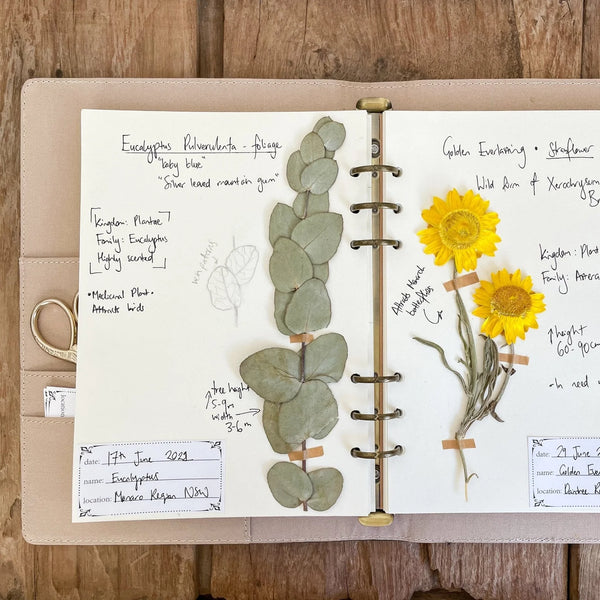 Eucalyptus Pulverulenta - foliage
"baby blue"
"Silver leaved mountain gum"
Kingdom: Plantae
Family: Eucalyptus
Highly scented
• Medicinal Plant •
Attracts birds
tree height
5-9m
width
3-6m
date: 17th June 2021
name: Eucalyptus
location: Monaro Region NSW
location
Golden Everlasting • Strawflower
Wild Form of Xerochrysum
Kingdom: Plant
Family: Astera
Attracts Monarch
butterflies
height
60-90cm
date: 29 June 2
name: Golden Ever
location: Daintree R